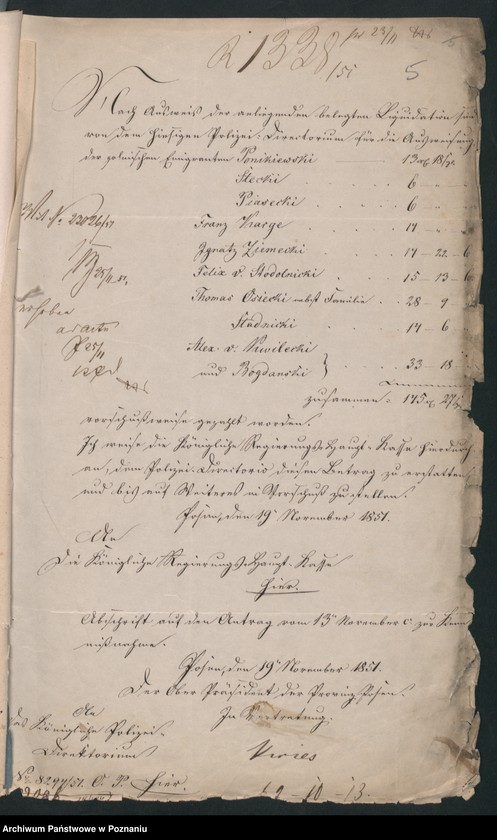 R 1338/51
pr 23/11
5
5
Nach Ausweis der anliegenden belegten Liquidation sind
von dem hiesigen Polizei-Directorium für die Ausweisung
der polnischen Emigranten Ponikiewski 13 rg 18
Stecki 6
Piasecki 6
Franz Krarge 14
Ignatz Ziemecki 14 - 22 - 6
Felix v. Stodolnicki 15 - 13 - 6
Thomas Osiecki nebst Familie 28 - 9
Stadnicki 14 - 6
Alex. v. Kwilecki
und Bogdanski } 33 - 18
zusammen = 145 rg 27
vorschußweise gezahlt worden.
Ich weise die Königliche Regierungs-Haupt-Kasse hierdurch
an, dem Polizei-Directorio diesen Betrag zu erstatten
und bis auf Weiteres in Vorschuß zu stellen.
Posen, den 19t November 1851.
An
Die Königliche Regierungs-Haupt-Kasse
hier.
Abschrift auf den Antrag vom 13t November c. zur Kennt
nißnahme.
Posen, den 19t November 1851.
Der Ober Präsident der Provinz Posen.
In Vertretung.
An
das Königliche Polizei-
Direktorium
hier.
No 8294/51. O. P.
Archiwum Państwowe w Poznaniu